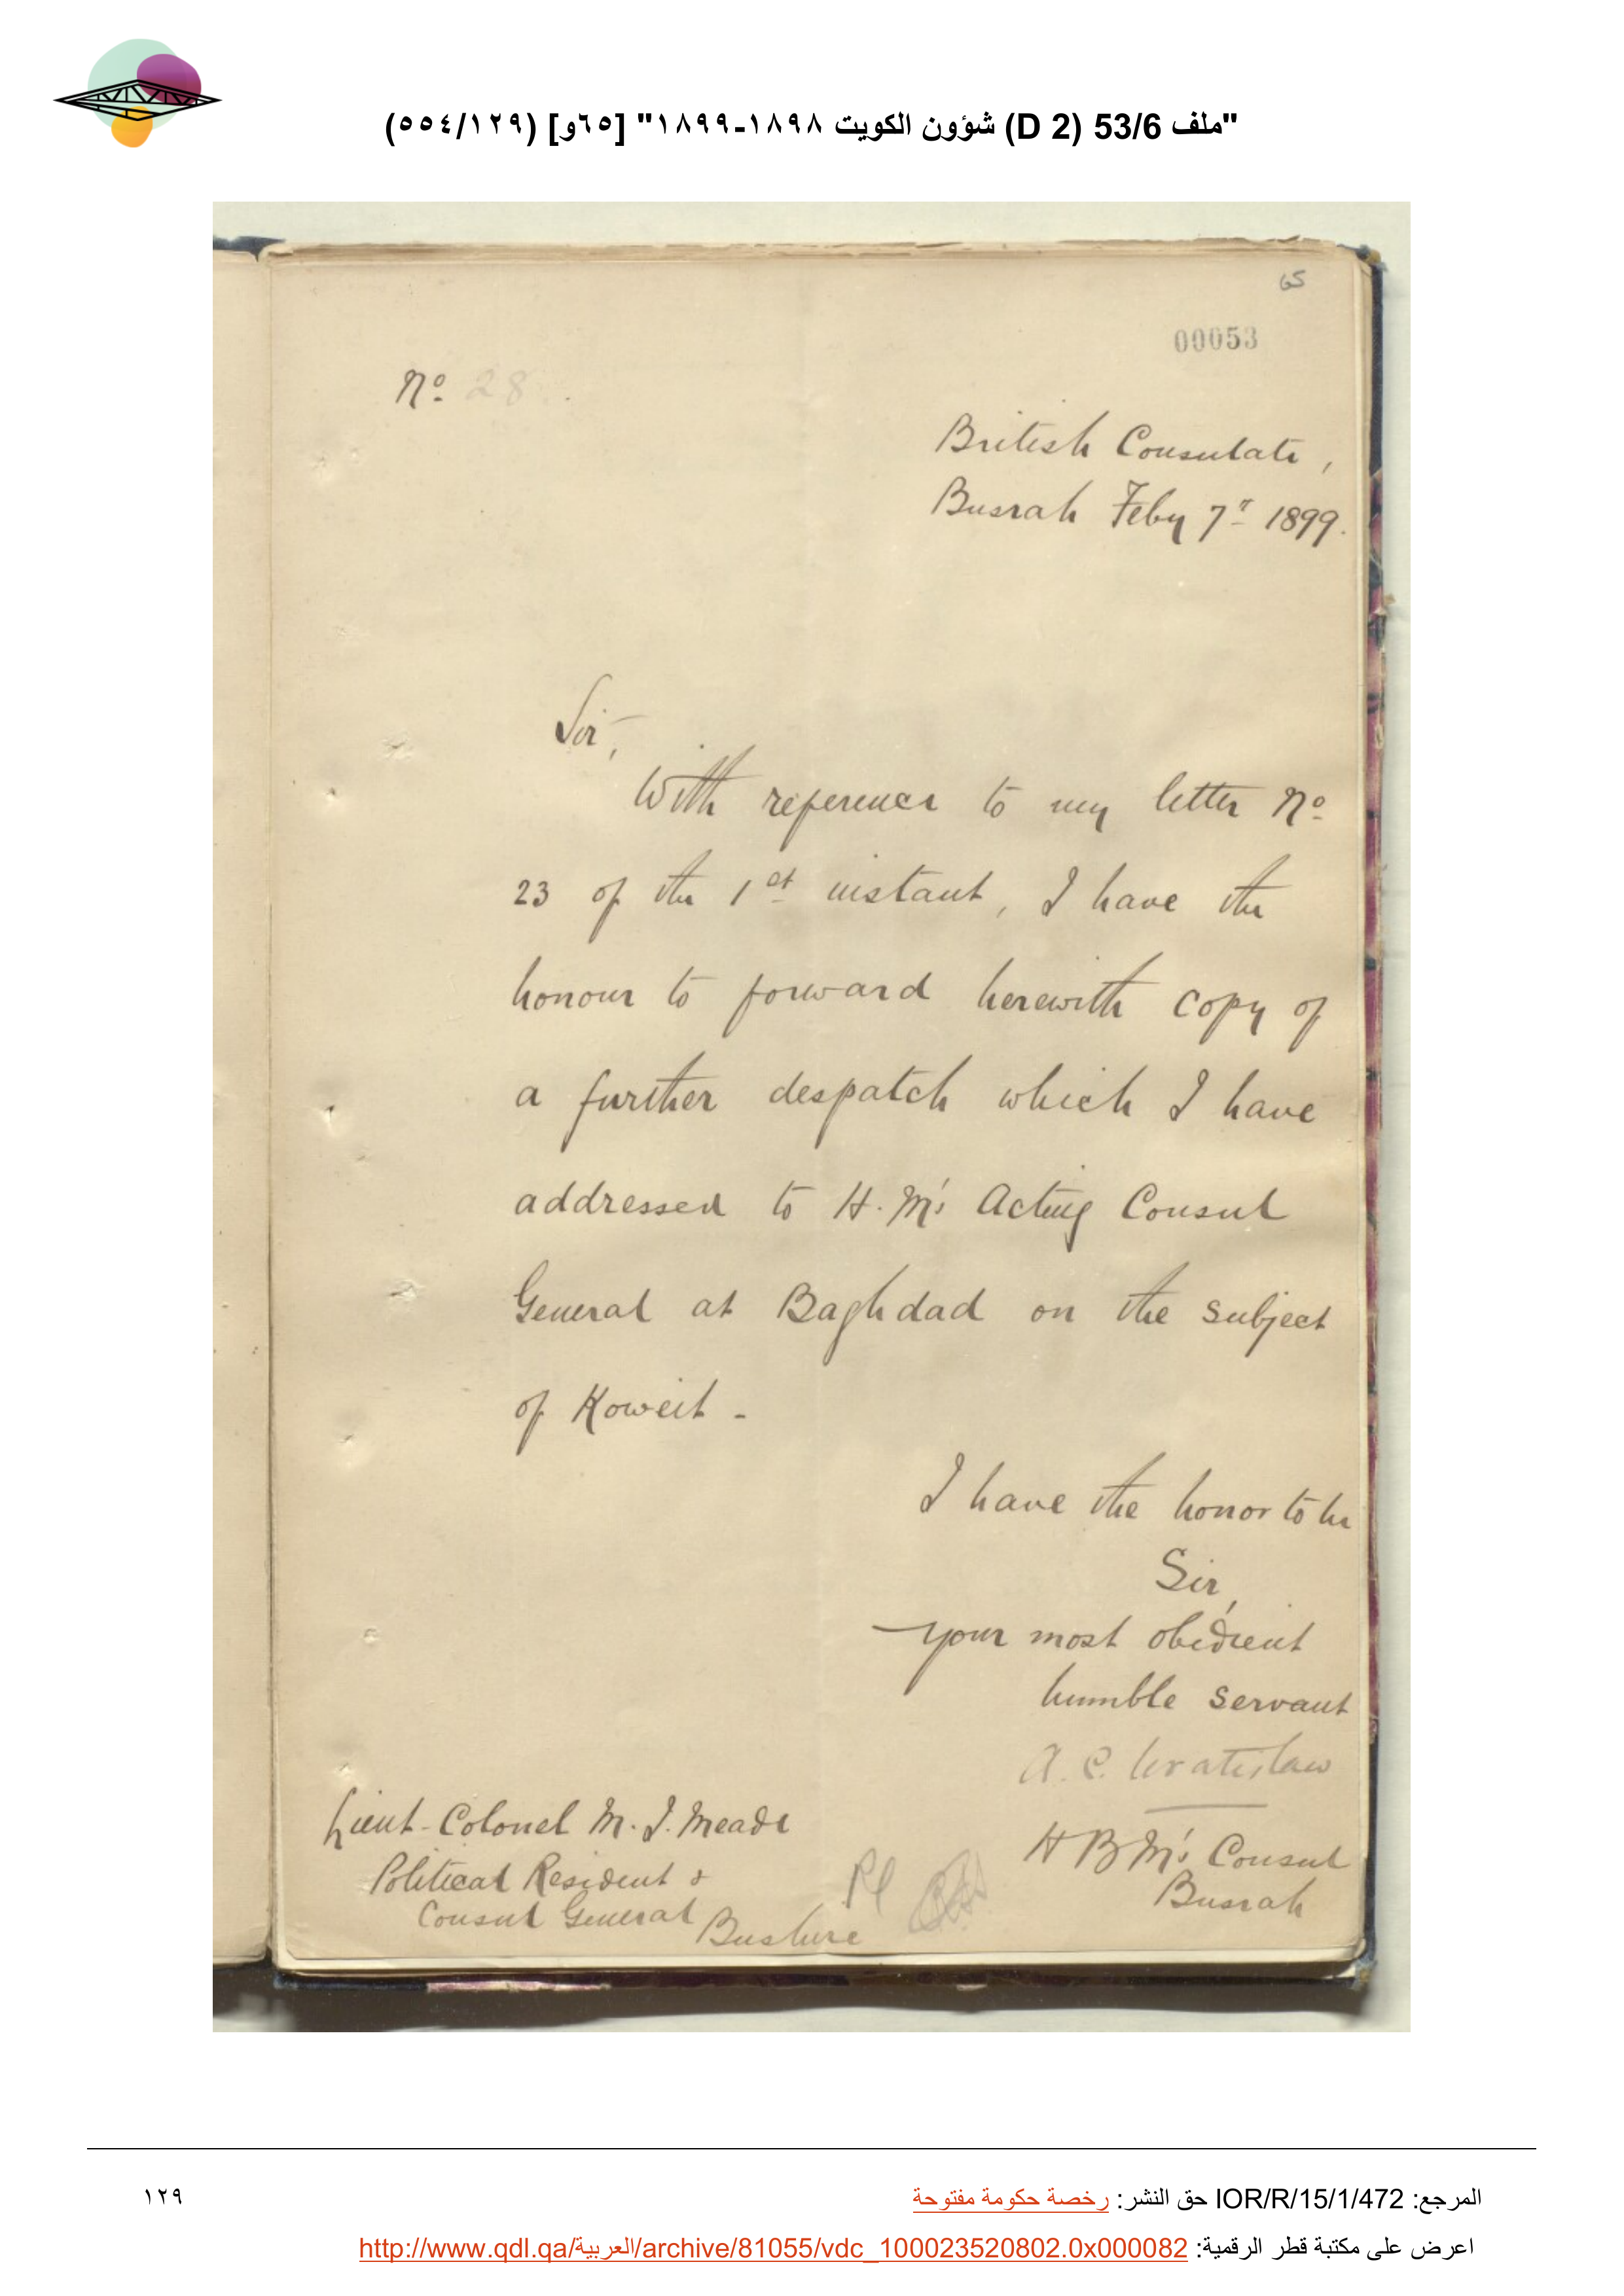 "ملف 53/6 (D 2) شؤون الكويت ١٨٩٨-١٨٩٩" [٦٥و] (١٢٩/٥٥٤)
65
00053
No. 28.
British Consulate,
Busrah Feby 7th 1899.
Sir,
With reference to my letter No.
23 of the 1st instant, I have the
honour to forward herewith copy of
a further despatch which I have
addressed to H.M's Acting Consul
General at Baghdad on the subject
of Koweit -
I have the honor to be
Sir,
your most obedient
humble servant
A. C. Wratislaw
H B M's Consul
Busrah
Lieut-Colonel M. J. Meade
Political Resident &
Consul General
Bushire
المرجع: IOR/R/15/1/472 حق النشر: رخصة حكومة مفتوحة
١٢٩
اعرض على مكتبة قطر الرقمية: http://www.qdl.qa/العربية/archive/81055/vdc_100023520802.0x000082